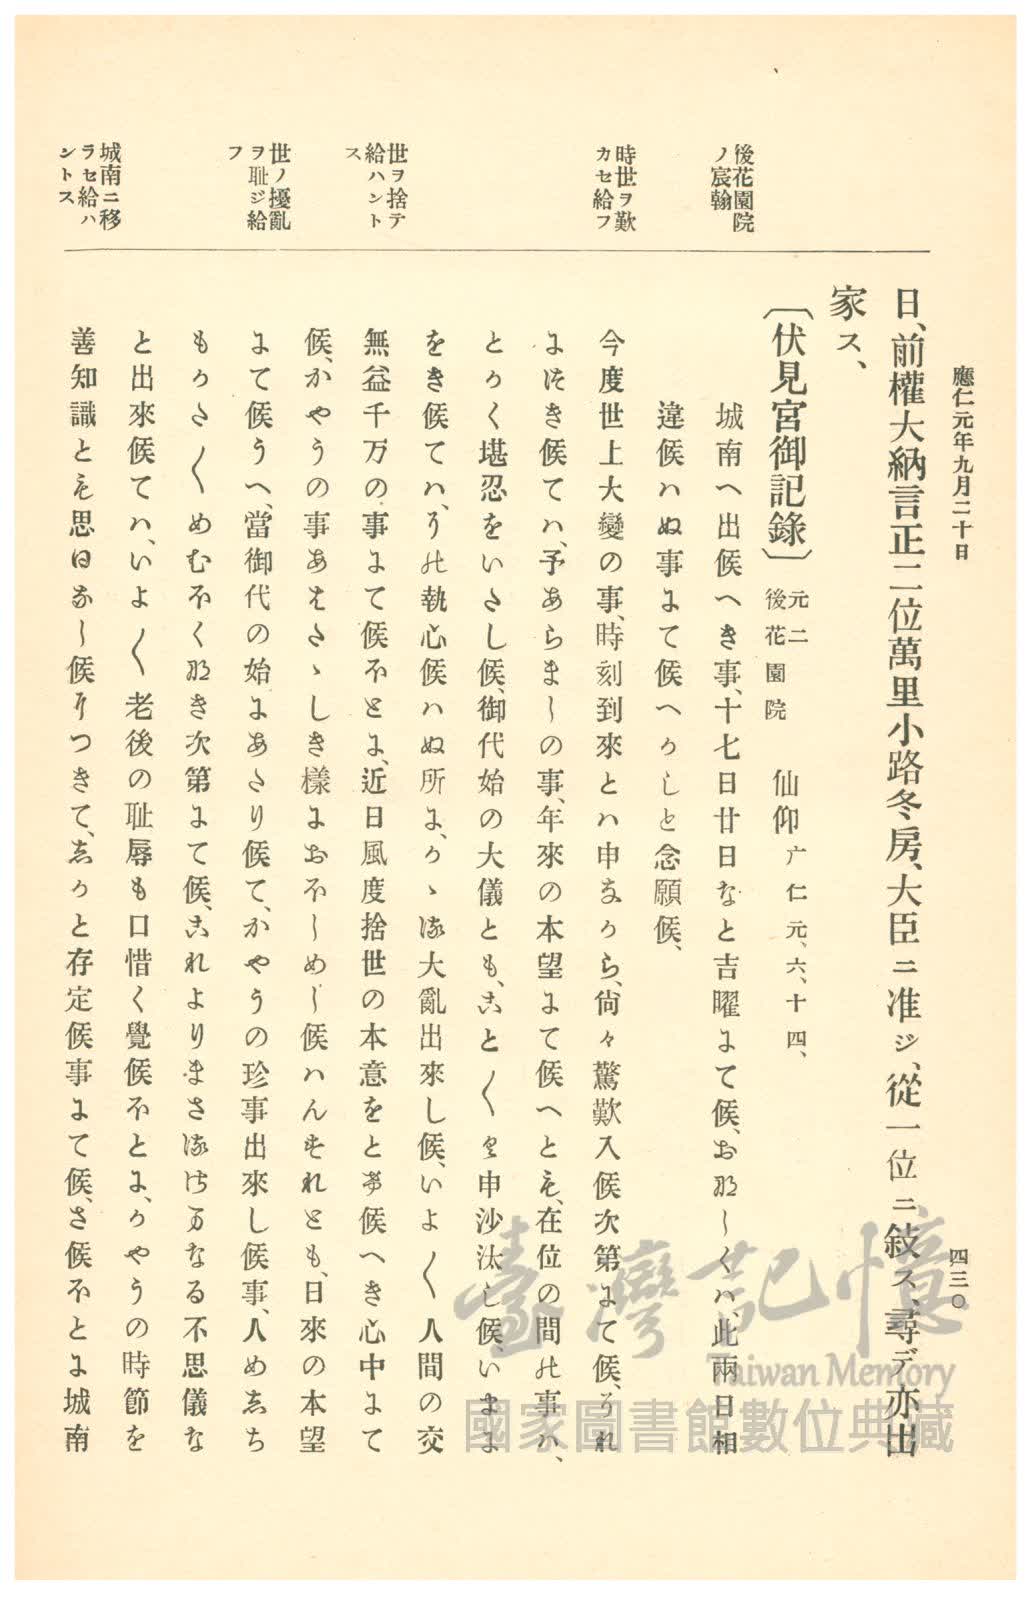 應仁元年九月二十日
四三〇
日、前權大納言正二位萬里小路冬房、大臣ニ准ジ、從一位ニ敍ス、尋デ亦出
家ス、
〔伏見宮御記錄〕元二後花園院 仙仰广仁元、六、十四、
城南へ出候へき事、十七日廿日なと吉曜にて候、おなしくハ、此兩日相
違候ハぬ事にて候へかしと念願候、
今度世上大變の事、時刻到來とハ申なから、尙々驚歎入候次第にて候、うれ
につき候てハ、予あらましの事、年來の本望にて候へとも、在位の間の事ハ、
とかく堪忍をいたし候、御代始の大儀とも、ことく〳〵申沙汰し候、いまに
をき候てハ、うの執心候ハぬ所に、かゝる大亂出來し候、いよ〳〵人間の交
無益千万の事にて候ほとに、近日風度捨世の本意をとけ候へき心中にて
候、かやうの事あまたゝしき樣におほしめし候ハんすれとも、日來の本望
にて候うへ、當御代の始にあたり候て、かやうの珍事出來し候事、人めこち
もかた〳〵めむほくなき次第にて候、これよりまさるけうなる不思儀な
と出來候てハ、いよ〳〵老後の耻辱も口惜く覺候ほとに、かやうの時節を
善知識とも思ひなし候りつきて、しかと存定候事にて候、さ候ほとに城南
後花園院ノ宸翰
時世ヲ歎カセ給フ
世ヲ捨テ給ハントス
世ノ擾亂ヲ耻ジ給フ
城南ニ移ラセ給ハントス
臺灣記憶
Taiwan Memory
國家圖書館數位典藏